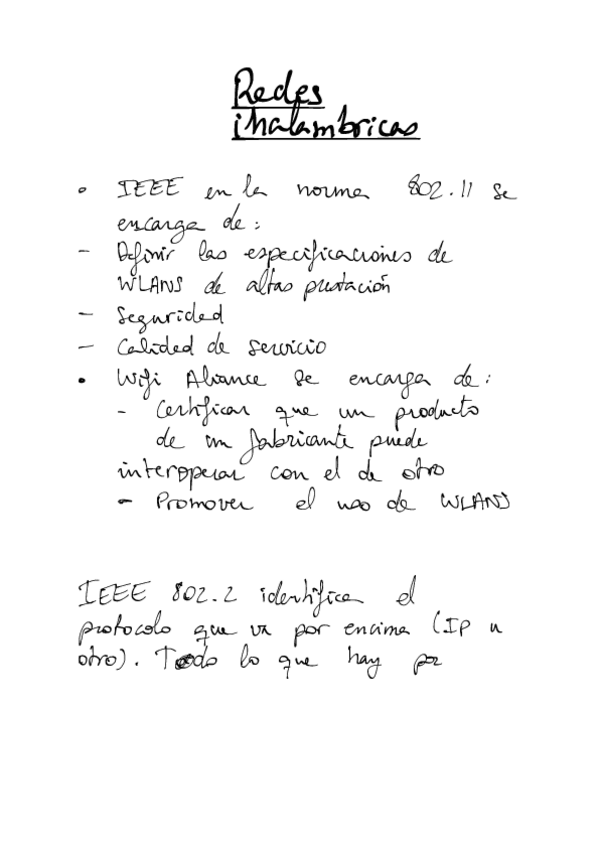 Redes
inalambricas
• IEEE en la norma 802.11 se
encarga de:
- Definir las especificaciones de
WLANS de altas prestación
- Seguridad
- Calidad de servicio
• Wifi Aliance se encarga de:
- Certificar que un producto
de un fabricante puede
interoperar con el de otro
- Promover el uso de WLANS
IEEE 802.2 identifica el
protocolo que va por encima (Ip u
otro). Todo lo que hay por